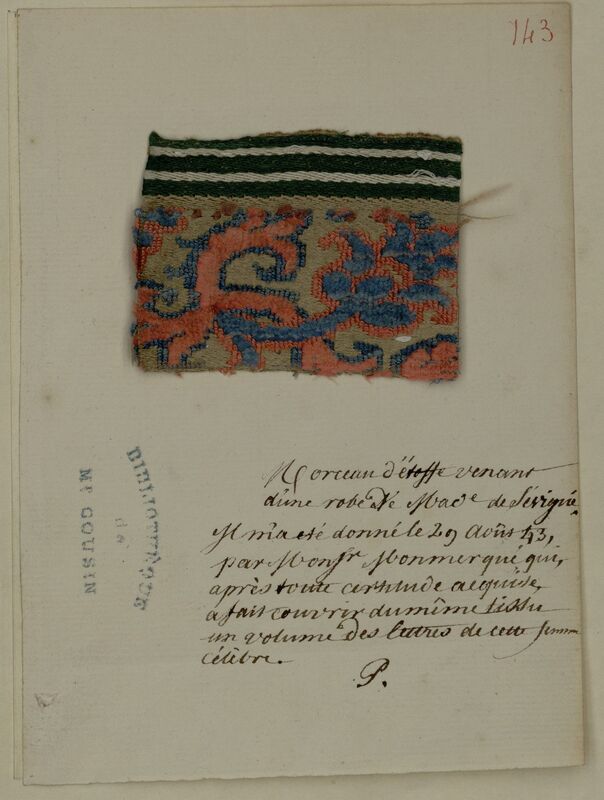 143
Morceau d'étoffe venant
d'une robe De Mad.e de Sévigné.
Il m'a eté donné le 29 Août 43,
par Monsr. Monmerqué qui,
après toute certitude acquise,
a fait couvrir du même tissu
un volume des lettres de cette femme
célèbre.
P.
BIBLIOTHEQUE
de
Mr COUSIN